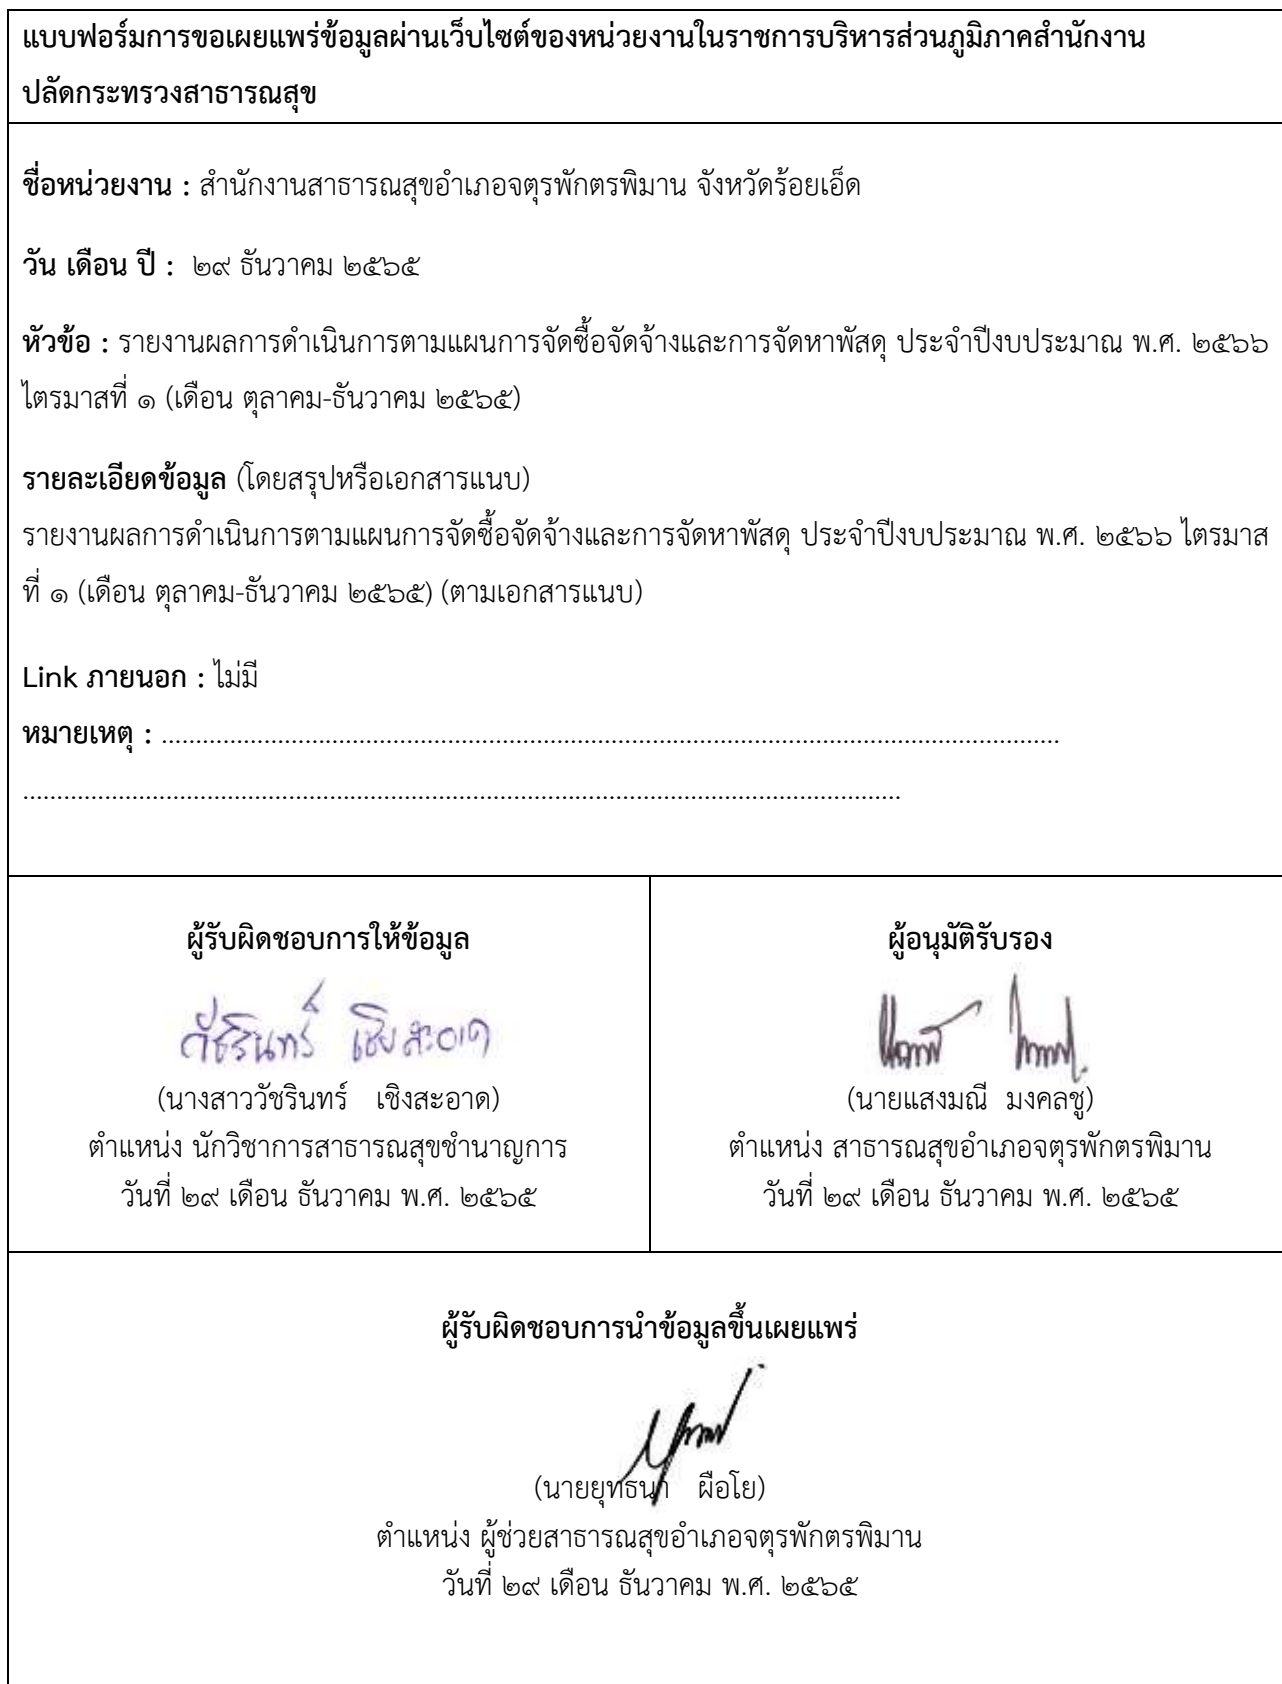 แบบฟอร์มการขอเผยแพร่ข้อมูลผ่านเว็บไซต์ของหน่วยงานในราชการบริหารส่วนภูมิภาคสำนักงาน
ปลัดกระทรวงสาธารณสุข
ชื่อหน่วยงาน : สำนักงานสาธารณสุขอำเภอจตุรพักตรพิมาน จังหวัดร้อยเอ็ด
วัน เดือน ปี : ๒๙ ธันวาคม ๒๕๖๕
หัวข้อ : รายงานผลการดำเนินการตามแผนการจัดซื้อจัดจ้างและการจัดหาพัสดุ ประจำปีงบประมาณ พ.ศ. ๒๕๖๖
ไตรมาสที่ ๑ (เดือน ตุลาคม-ธันวาคม ๒๕๖๕)
รายละเอียดข้อมูล (โดยสรุปหรือเอกสารแนบ)
รายงานผลการดำเนินการตามแผนการจัดซื้อจัดจ้างและการจัดหาพัสดุ ประจำปีงบประมาณ พ.ศ. ๒๕๖๖ ไตรมาส
ที่ ๑ (เดือน ตุลาคม-ธันวาคม ๒๕๖๕) (ตามเอกสารแนบ)
Link ภายนอก : ไม่มี
หมายเหตุ : ....................................................................................................................................
.................................................................................................................................
ผู้รับผิดชอบการให้ข้อมูล
วัชรินทร์ เชิงสะอาด
(นางสาววัชรินทร์ เชิงสะอาด)
ตำแหน่ง นักวิชาการสาธารณสุขชำนาญการ
วันที่ ๒๙ เดือน ธันวาคม พ.ศ. ๒๕๖๕
ผู้อนุมัติรับรอง
(นายแสงมณี มงคลชู)
ตำแหน่ง สาธารณสุขอำเภอจตุรพักตรพิมาน
วันที่ ๒๙ เดือน ธันวาคม พ.ศ. ๒๕๖๕
ผู้รับผิดชอบการนำข้อมูลขึ้นเผยแพร่
(นายยุทธนา ผือโย)
ตำแหน่ง ผู้ช่วยสาธารณสุขอำเภอจตุรพักตรพิมาน
วันที่ ๒๙ เดือน ธันวาคม พ.ศ. ๒๕๖๕